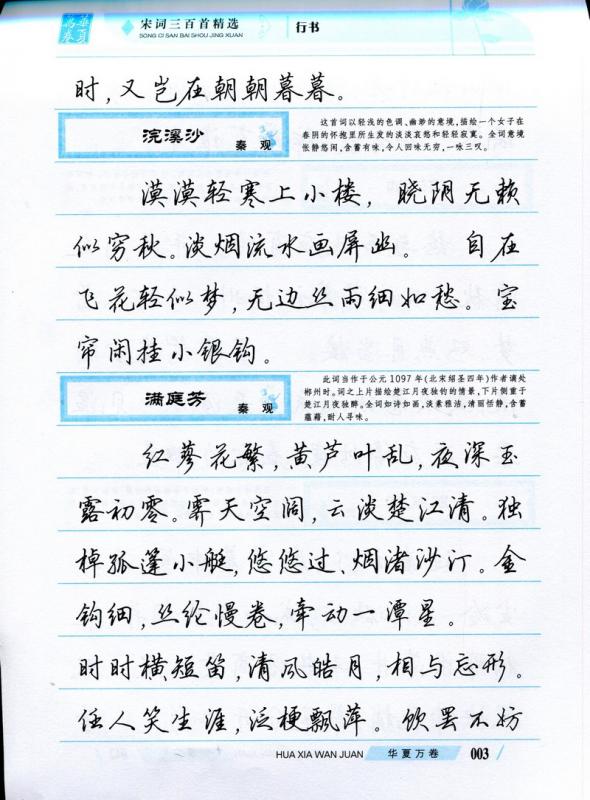 华夏万卷
宋词三百首精选
SONG CI SAN BAI SHOU JING XUAN
行书
时，又岂在朝朝暮暮。
浣溪沙
秦 观
这首词以轻浅的色调、幽渺的意境，描绘一个女子在
春阴的怀抱里所生发的淡淡哀愁和轻轻寂寞。全词意境
怅静悠闲，含蓄有味，令人回味无穷，一咏三叹。
漠漠轻寒上小楼，晓阴无赖
似穷秋。淡烟流水画屏幽。 自在
飞花轻似梦，无边丝雨细如愁。宝
帘闲挂小银钩。
满庭芳
秦 观
此词当作于公元1097年（北宋绍圣四年）作者谪处
郴州时。词之上片描绘楚江月夜独钓的情景，下片侧重于
江楼月夜独醉。全词如诗如画，淡素雅洁，清丽恬静，含蓄
蕴藉，耐人寻味。
红蓼花繁，黄芦叶乱，夜深玉
露初零。霁天空阔，云淡楚江清。独
棹孤篷小艇，悠悠过、烟渚沙汀。金
钩细，丝纶慢卷，牵动一潭星。
时时横短笛，清风皓月，相与忘形。
任人笑生涯，泛梗飘萍。饮罢不妨
HUA XIA WAN JUAN
华夏万卷
003